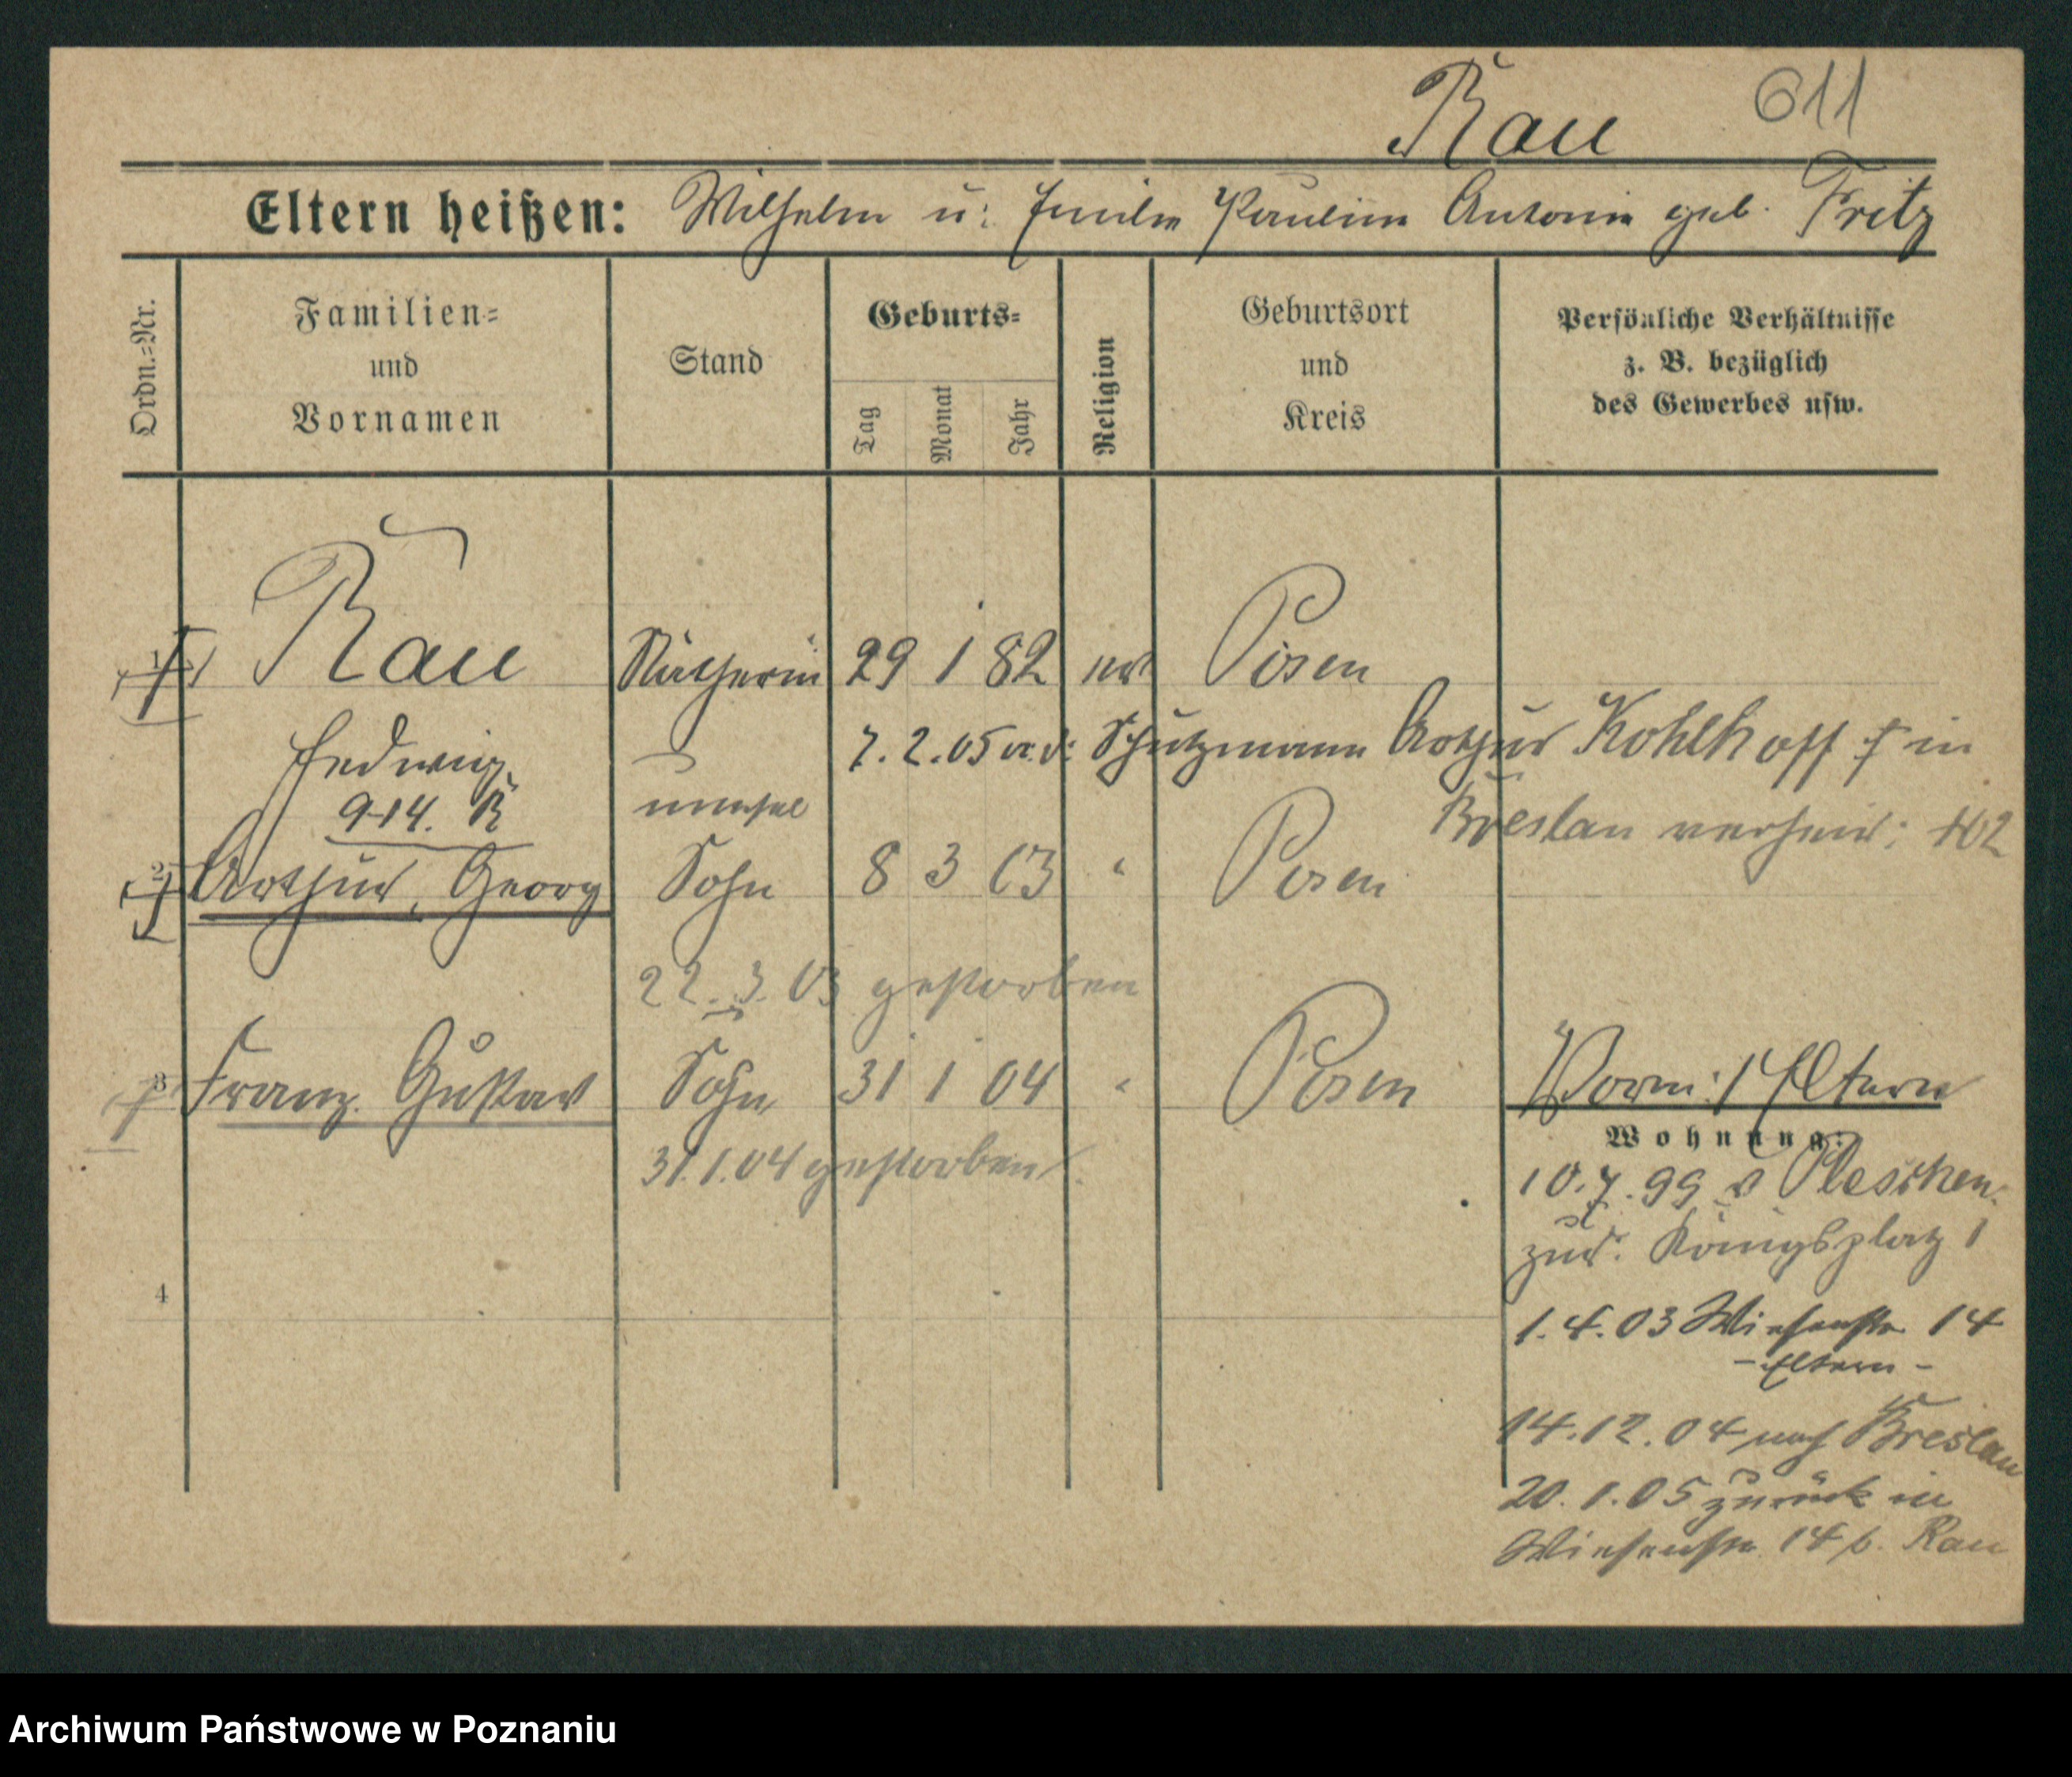 Rau 611
Eltern heißen: Wilhelm u: Emilie Pauline Antonie geb. Fritz
Ordn.-Nr.
Familien-
und
Vornamen
Stand
Geburts-
Tag
Monat
Jahr
Religion
Geburtsort
und
Kreis
Persönliche Verhältnisse
z. B. bezüglich
des Gewerbes usw.
1 Rau Nätherin 29 1 82 Posen
Hedwig 7.2.05 Schutzmann Arthur Kohlhoff in
914. R unehel Breslau verheir:
2 Arthur, Georg Sohn 8 3 03 " Posen
22.3.03 gestorben
3 Franz Gustav Sohn 31 1 04 " Posen
31.1.04 gestorben
4
Vorm: / Eltern
Wohnung:
10.7.99 v Pleschen
zur. Königsplatz 1
1.4.03 Wiesenstr 14
- Eltern -
14.12.04 nach Breslau
20.1.05 zurück in
Wiesenstr 14 b. Rau
Archiwum Państwowe w Poznaniu